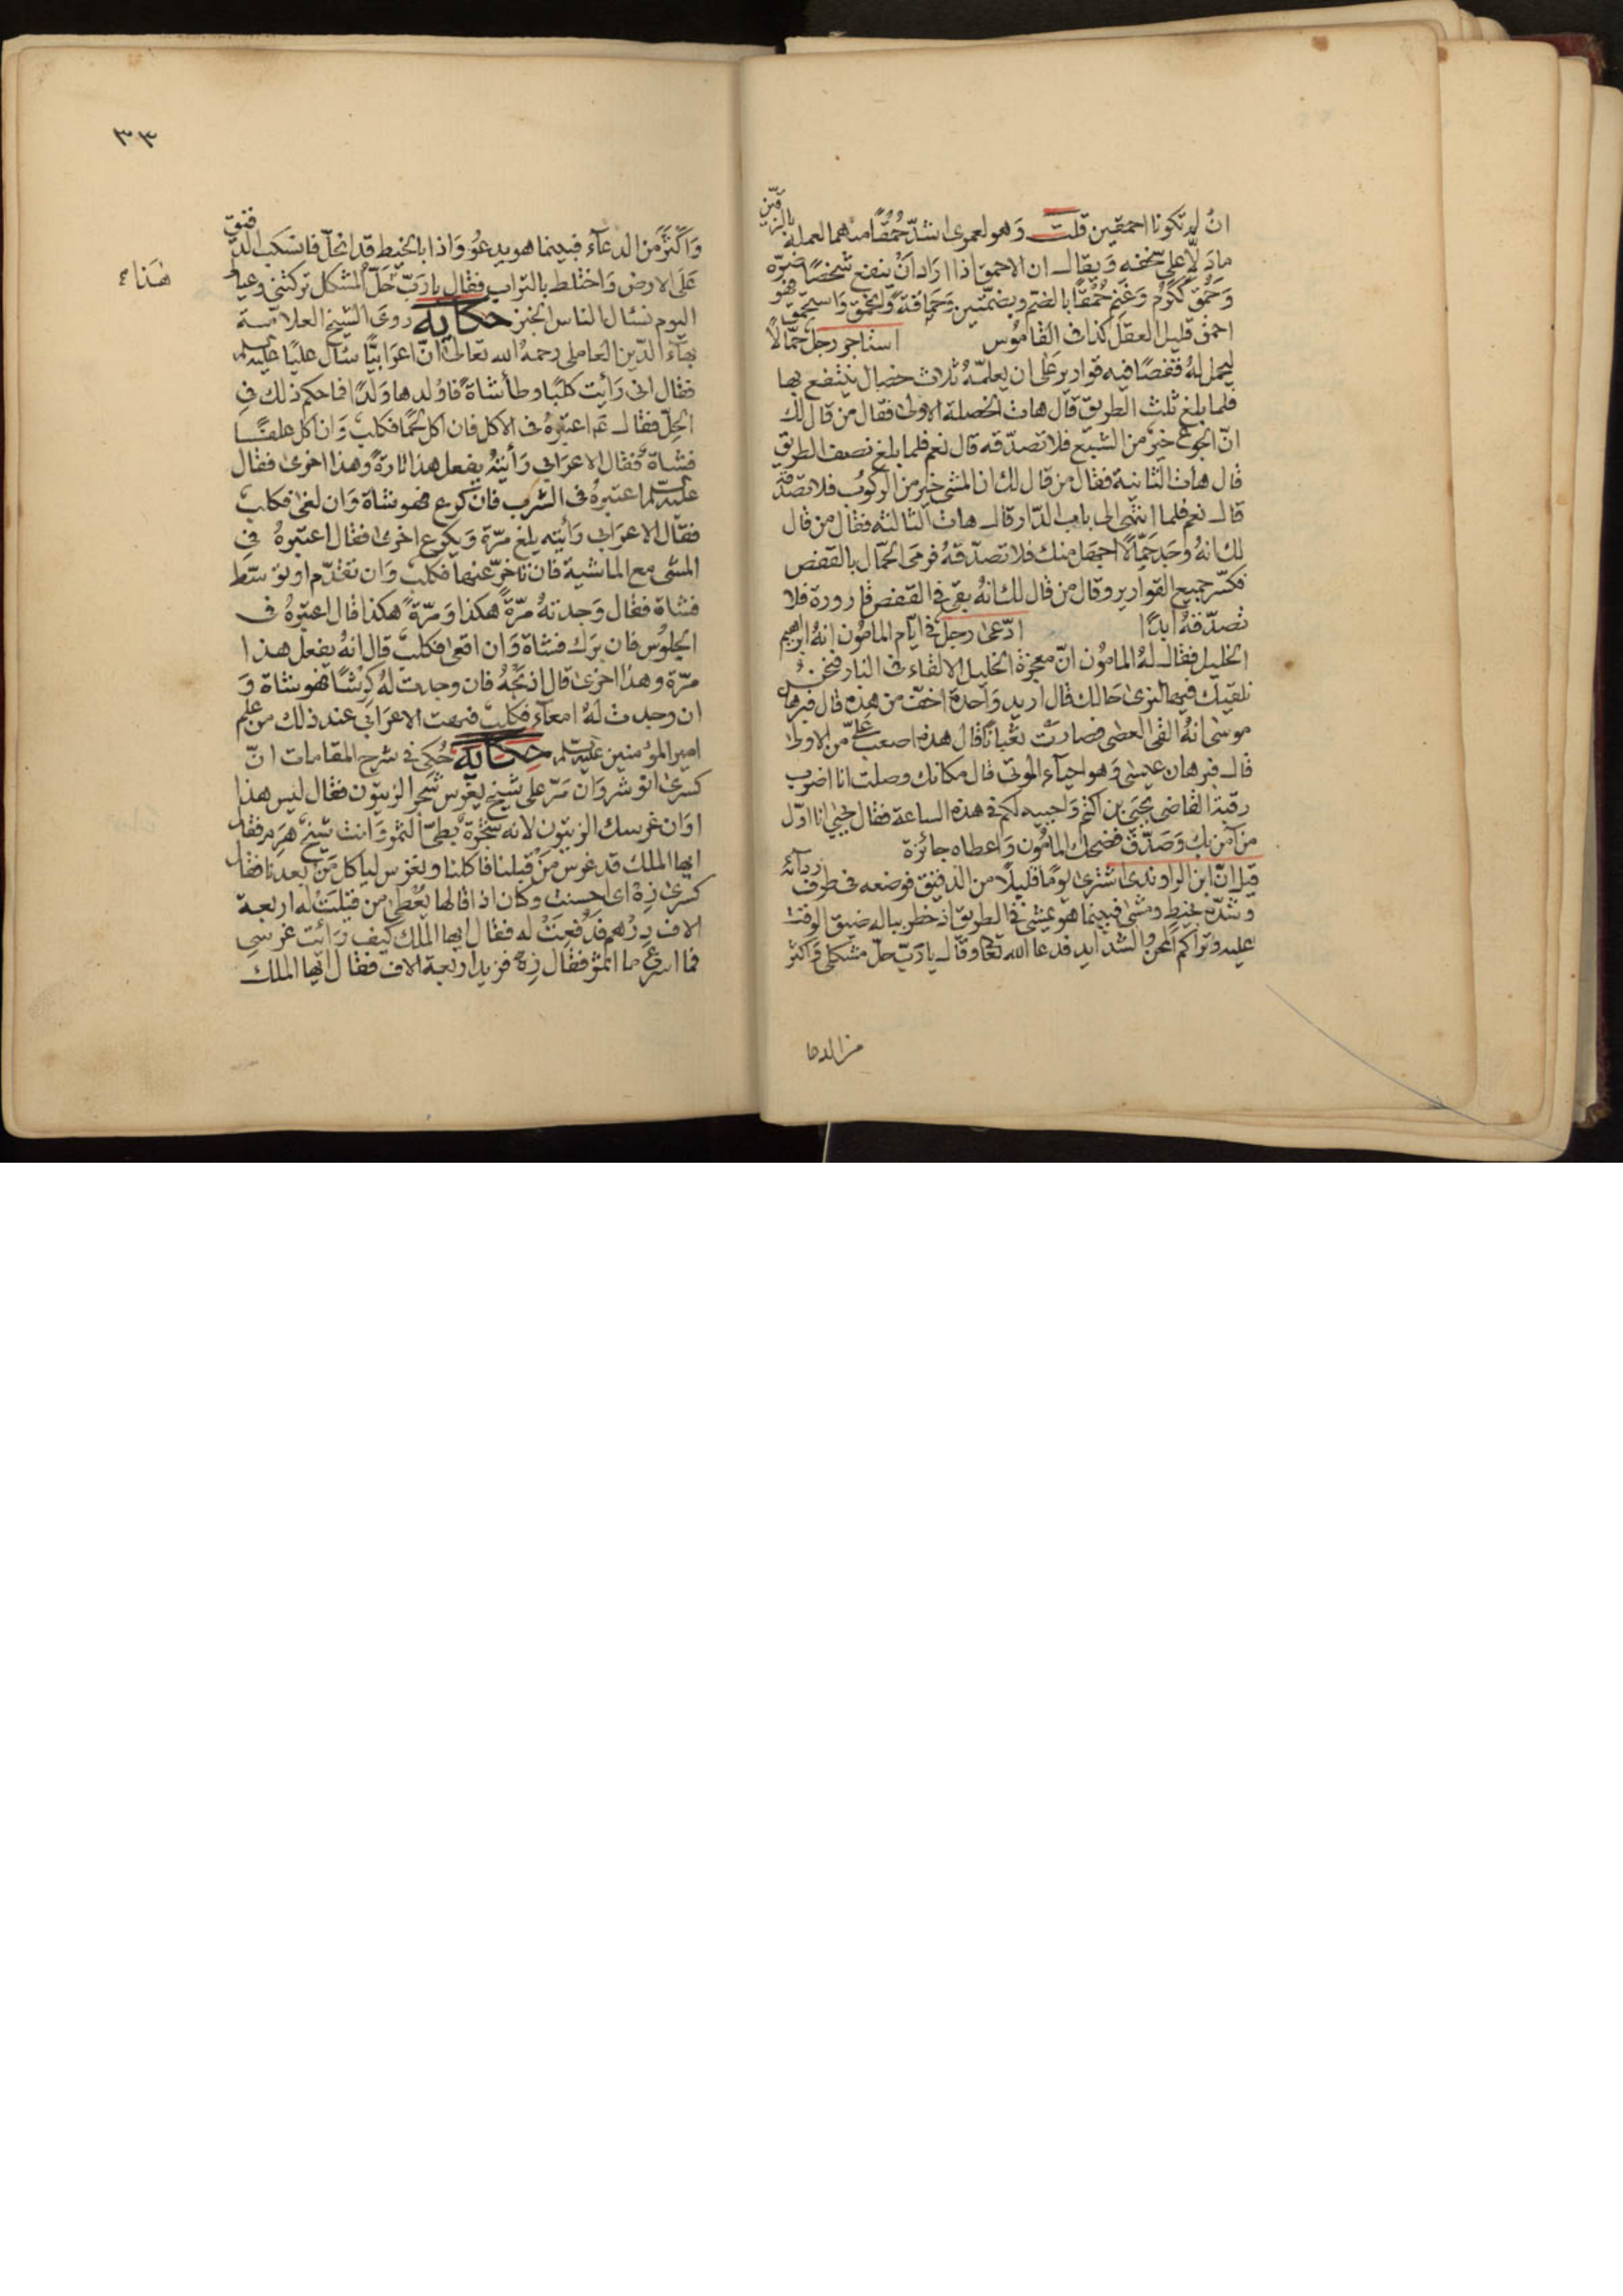 ان لم تكونا احمقين قلت وهو لعمرى اشدّ حُمُقًا منهما لعمله بالزقّين
ما دلّ على سخفه ويقال ان الاحمق اذا اراد اَنْ ينفع شخصًا ضرّه
وَحَمُقَ ككَرُمَ وَغَنِمَ حُمْقًا بالضم وبضمّتين وَحَمَاقَةً وانحمق وَاستحمق فهو
احمق قليل العقل كذا فى القاموس استاجر رجل حمّالًا
ليحمل لهُ قفصًا فيه قوارير عَلى ان يعلمّهُ ثلاث خصال ينتفع بها
فلما بلغ ثلث الطريق قال هات الخصلة الاولى فقال من قال لك
انّ الجوع خيرٌ من الشبع فلا تصدّقه قال نعم فلما بلغ نصف الطريق
قال هات الثانية فقال من قال لك ان المشى خير من الركوب فلا تصدّقه
قال نعم فلما انتهى الى باب الدّار قال هات الثالثه فقال من قال
لك انهُ وجَد حَمّالًا اجهَل منك فلا تصدّقهُ فرمَى الحمّال بالقفص
فكسّر جميع القوارير وقال من قال لك انهُ بقى فى القفص قارورة فلا
تصدّقهُ ابدًا ادّعى رجل فى ايّام المامُون انهُ ابراهيم
الخليل فقال لهُ المامُون انّ معجزة الخليل الالقاء فى النار فنحن
نلقيك فيها لنرى حَالك قال اريد وَاحدة اخفّ من هذه قال فبرهان
موسى انهُ القى العصى فصارت ثعْبانًا قال هذه اصعب عَليَّ من الاولى
قال فبرهان عيسٰى وَهو احيآء الموتى قال مكانك وصلت انا اضرب
رقبة القاضى يحيَى بن اكثم وَاحييه لكم فى هذه الساعة فقال يحيى انا اوّل
من آمن بك وَصدّق فضحك المامُون وَاعطاه جائزة
قيل انّ ابن الراوندى اشترى يومًا قليلًا من الدقيق فوضعه فى طرف ردآئه
وشدّه بخيط ومشى فبينما هو يمشى فى الطريق اذ خطر بباله ضيق الوقت
عليه وتراكم المحن والشدايد فدعا الله تعا وقال يا ربّ حلّ مشكلى وَاكثر
من الدعا
٣٣
وَاكْثَرَ من الدعآء فبينما هو يدعُو وَاذا بالخيط قد انحلّ فانسكب الدقيق
عَلى الارض وَاختلط بالتراب فقال يا رَبّ حَلّ المشكل تركتنى وعيالى
هٰذا
اليوم نسْال الناس الخبز حكاية روى الشيخ العلامة
بهآء الدّين العاملى رحمهُ الله تعالى انّ اعرَابيًّا سَال عليًّا عليه السلم
فقال انى رَايت كلبًا وطأ شاةً فاوْلدها وَلدًا فما حكم ذلك فى
الحِلّ فقال عم اعتبرهُ فى الاكل فان اكل لحمًا فكلب وَان اكل علفًا
فشاة فقال الاعرَابى رَأيتهُ يفعل هذا تارة وَهذا اخرى فقال
عليه السلم اعتبرهُ فى الشرب فان كرع فهو شاة وَان لغى فكلب
فقال الاعرَابى رَأيته يلغ مرّة وَيكرع اخرى فقال اعتبرهُ فى
المشى مع الماشية فان تاخّر عنها فكلب وَان تقدّم او توسّط
فشاة فقال وَجدتهُ مرّةً هكذا وَمرّةً هكذا قال اعتبرهُ فى
الجلوُس فان برَك فشاة وَان اقعى فكلب قال انهُ يفعل هذا
مرّة وهذا اخرى قال اذبَحْهُ فان وجدت لهُ كِرْشًا فهو شاة وَ
ان وجدت لهُ امعآء فكلب فبهت الاعرَابى عند ذلك من علم
امير المؤمنين عليه السلم حكاية حُكى فى شرح المقامات انّ
كسرى انوشروَان مَرّ على شيخ يغرس شجر الزيتون فقال ليس هذا
اوَان غرسك الزيتون لانه شجرة بطئ الثمر وَانت شيخ هَرِم فقال
ايها الملك قد غرس مَنْ قبلنا فاكلنا ونغرس لياكل مَن بعدنا فقال
كسرى زِهْ اى احسنت وكان اذا قالها يُعْطِى من قيلَتْ له اربعة
الاف دِرْهم فدُفعتْ له فقال ايها الملك كيف رَأيت غرسى
فما اسرع ما اثمر فقال زِهْ فزيد اربعة الاف فقال ايها الملك